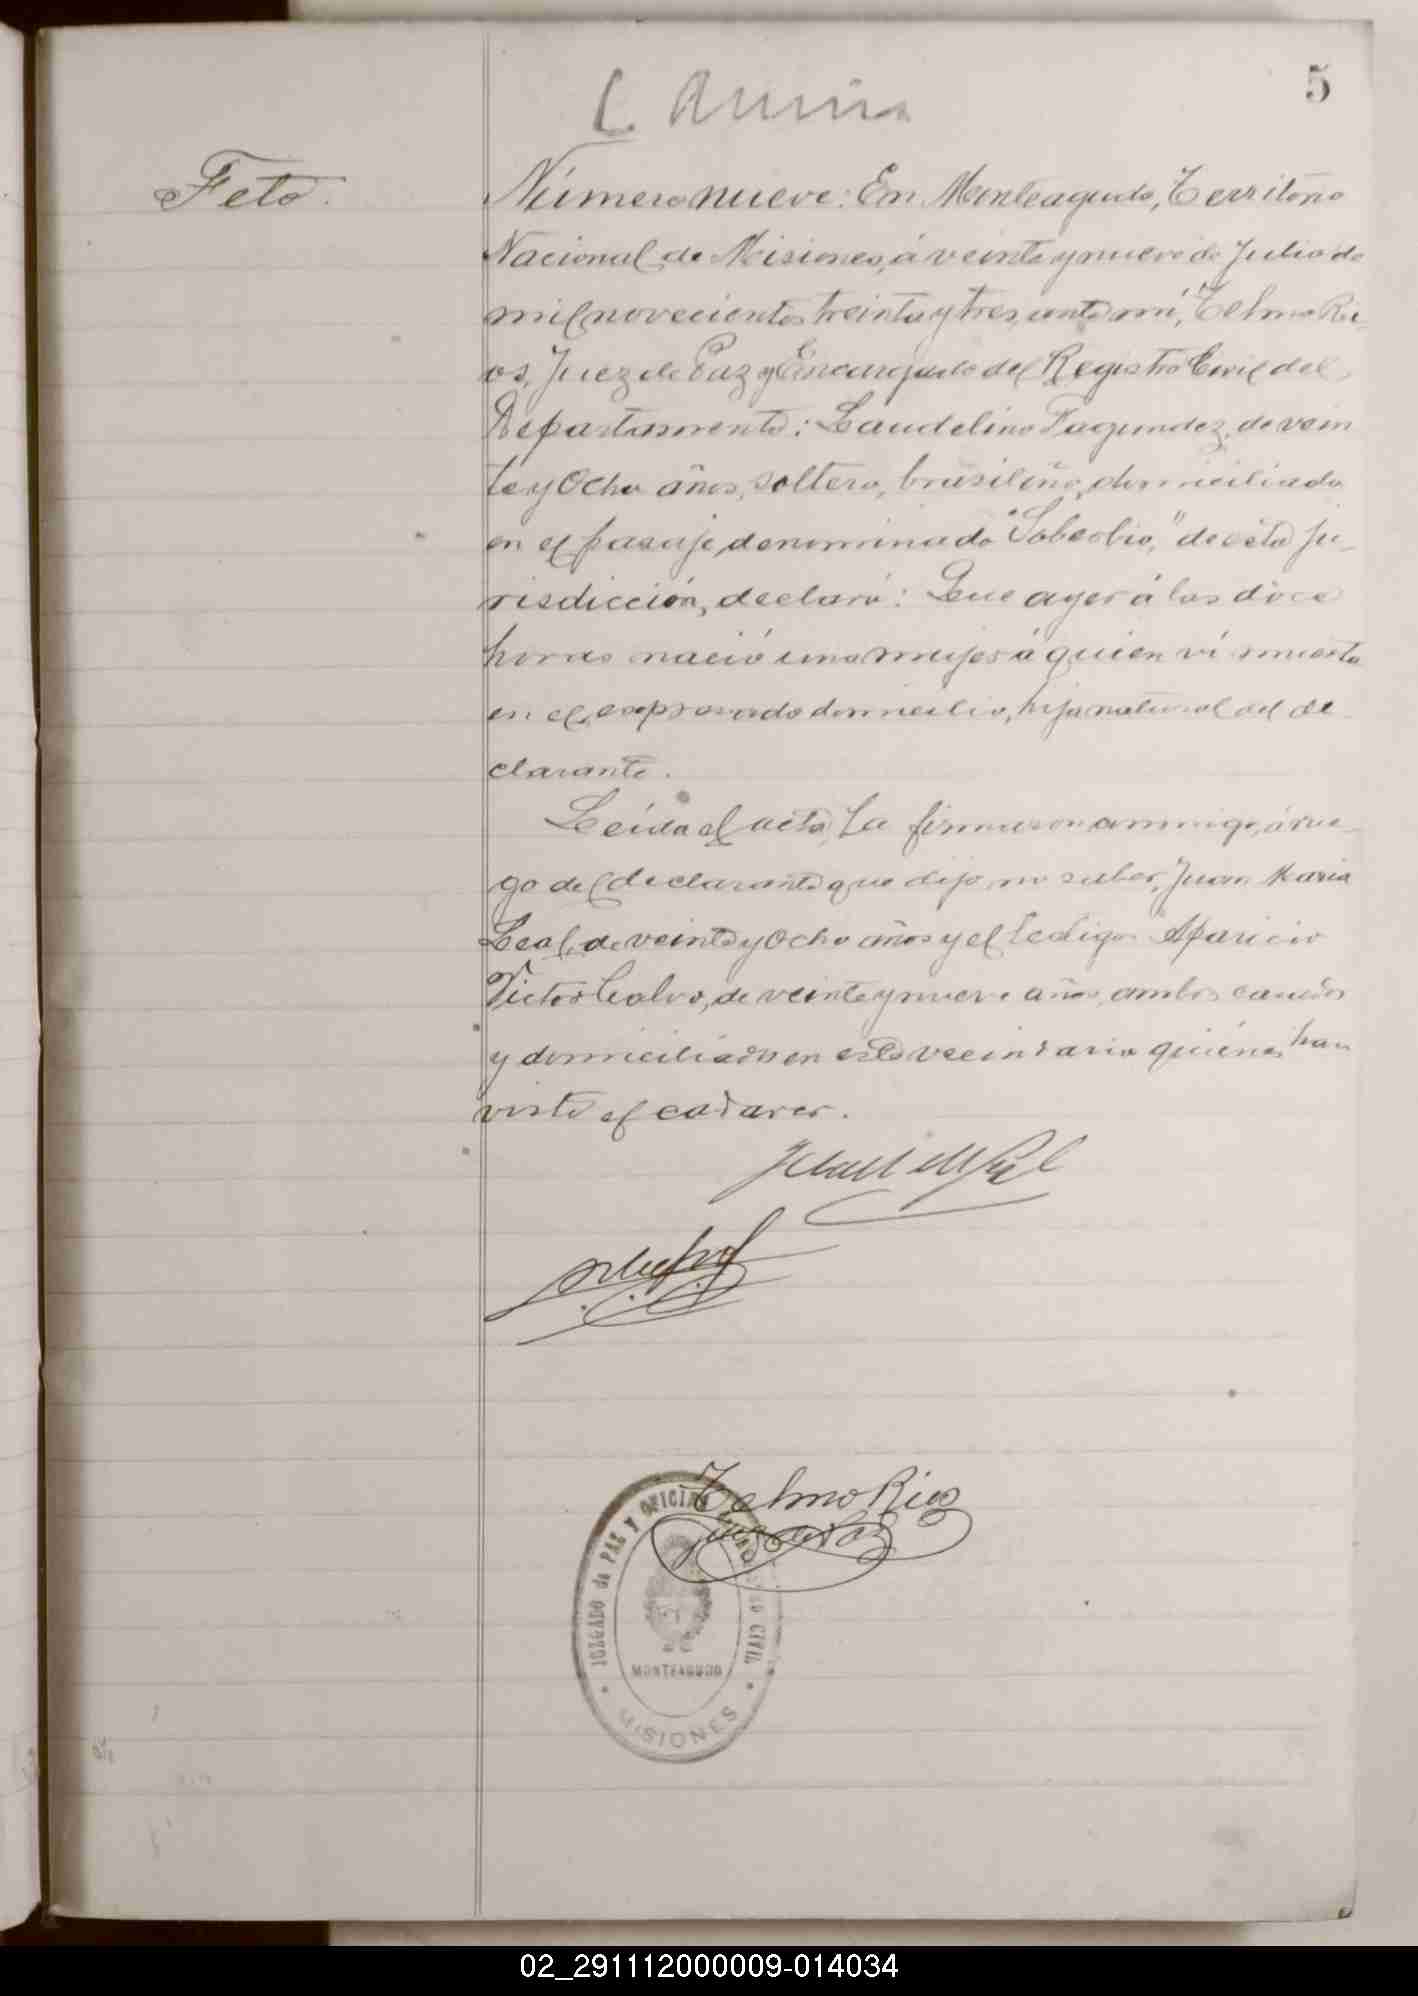 5
Feto.
Número nueve: En Monteagudo, Territorio
Nacional de Misiones, á veinte y nueve de Julio de
mil novecientos treinta y tres, ante mí, Telmo Ri-
os, Juez de Paz y Encargado del Registro Civil del
Departamento: Laudelino Fagundez, de vein
te y Ocho años, soltero, brasileño, domiciliado
en el paraje denominado "Soberbio," de esta ju-
risdicción, declaró: Que ayer á las doce
horas nació una mujer á quien ví muerta
en el expresado domicilio, hija natural del de
clarante.
Leída el acta, la firmaron conmigo, á rue-
go del declarante que dijo no saber, Juan Maria
Leal, de veinte y Ocho años y el testigo Aparicio
Victor Calvo, de veinte y nueve años, ambos casados
y domiciliados en este vecindario quiénes han
visto el cadaver.
Telmo Rios
Juez de Paz
JUZGADO de PAZ Y OFICINA CIVIL
MONTEAGUDO
MISIONES
02_291112000009-014034